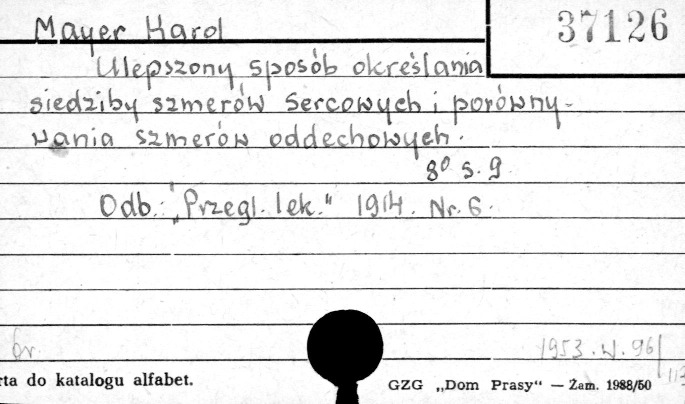 Mayer Karol
37126
Ulepszony sposób określania
siedziby szmerów sercowych i porówny-
wania szmerów oddechowych.
8° s. 9.
Odb.: „Przegl. lek." 1914. Nr. 6.
br.
1953.W.96/
113
rta do katalogu alfabet.
GZG „Dom Prasy“ — Żam. 1988/50